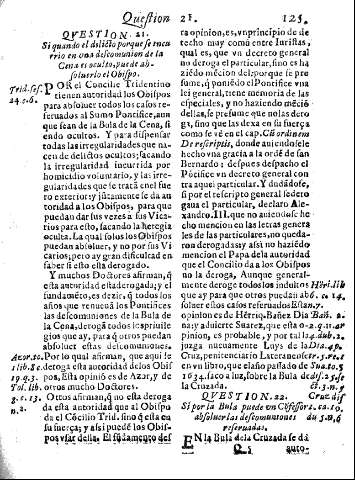 Question 21. 125.
QVESTION. 21.
Si quando el delicto porque se incu
rrio en una descomunion de la
Cena es oculto, puede ab-
soluerlo el Obispo.
Trid. ses. POR el Concilio Tridentino
24. c. 6. tienen autoridad los Obispos
para absoluer todos los casos re-
seruados al Sumo Pontifice, aun
que sean de la Bula de la Cena, si
endo ocultos. Y para dispensar
todas las irregularidades que na-
cen de delictos ocultos; sacando
la irregularidad incurrida por
homicidio voluntario, y las irre-
gularidades que se tratā en el fue
ro exterior: y jūtamente se da au
toridad a los Obispos, para que
puedan dar sus vezes a sus Vica-
rios para esto, sacando la heregia
oculta. La qual solos los Obispos
puedan absoluer, y no por sus Vi
carios; pero ay gran dificultad en
saber si esto està derogado.
Y muchos Doctores afirman, q̄
esta autoridad està derogada; y el
fundamēto, es dezir, q̄ todos los
años que renueuā los Pontifices
las descomuniones de la Bula de
la Cena, derogā todos los priuile
gios que ay, para q̄ otros puedan
absoluer estas descomuniones.
Azor. to. Por lo qual afirman, que aqui se
1. lib. 8. c. deroga esta autoridad de los Obis
19. q. 3. pos. Esta opinion es de Azor, y de
Tol. lib. otros mucho Doctores.
1. c. 13. Otros afirman, q̄ no està deroga
n. 2. da esta autoridad que al Obispo
da el Cōcilio Trid. sino q̄ està en
su fuerça; y assi puede los Obis-
pos vsar della. El fūdamento des
ra opinion, es, vn principio de de
recho muy comō entre Iuristas,
qual es, que vn decreto general
no deroga el particular, sino es ha
ziēdo mēcion del; porque se pre
sume, q̄ poniēdo el Pontifice vna
lei general, tiene memoria de las
especiales, y no haziendo mēciō
dellas, se presume que no las dero
ga, sino que las dexa en su fuerça
como se vè en el cap. Cū ordinem
De rescriptis, donde auiendo se le
hecho vna gracia a la ordē de san
Bernardo: despues despacho el
Pōtifice vn decreto general con
tra aquel particular. Y dudādose,
si por el rescripto general se dero
gaua el particular, declaro Ale-
xandro. III. que no auiendose he
cho mencion en las letras genera
les de las particulares, no queda-
ron derogadas: y assi no haziēdo
mencion el Papa de la autoridad
que el Concilio da a los Obispos
no la deroga, Aunque general-
mente deroge todos los indultos
que ay para que otros puedan ab-
soluer estos casos referuados. Esta
opinion es de Hēriq. Bañez Dia
na: y aduierte Suarez, que esta o-
pinion, es probable, y por tal la
juzga nueuamente Luys de la
Cruz, penitenciario Lateranense
en vn libro, que el año passado de
1634. saco a luz, sobre la Bula de
la Cruzada.
Hēri. lib.
QVESTION. 22.
Si por la Bula puede vn Cōfessor
absoluer las descomuniones
reseruadas.
EN la Bula de la Cruzada se dà
auto-